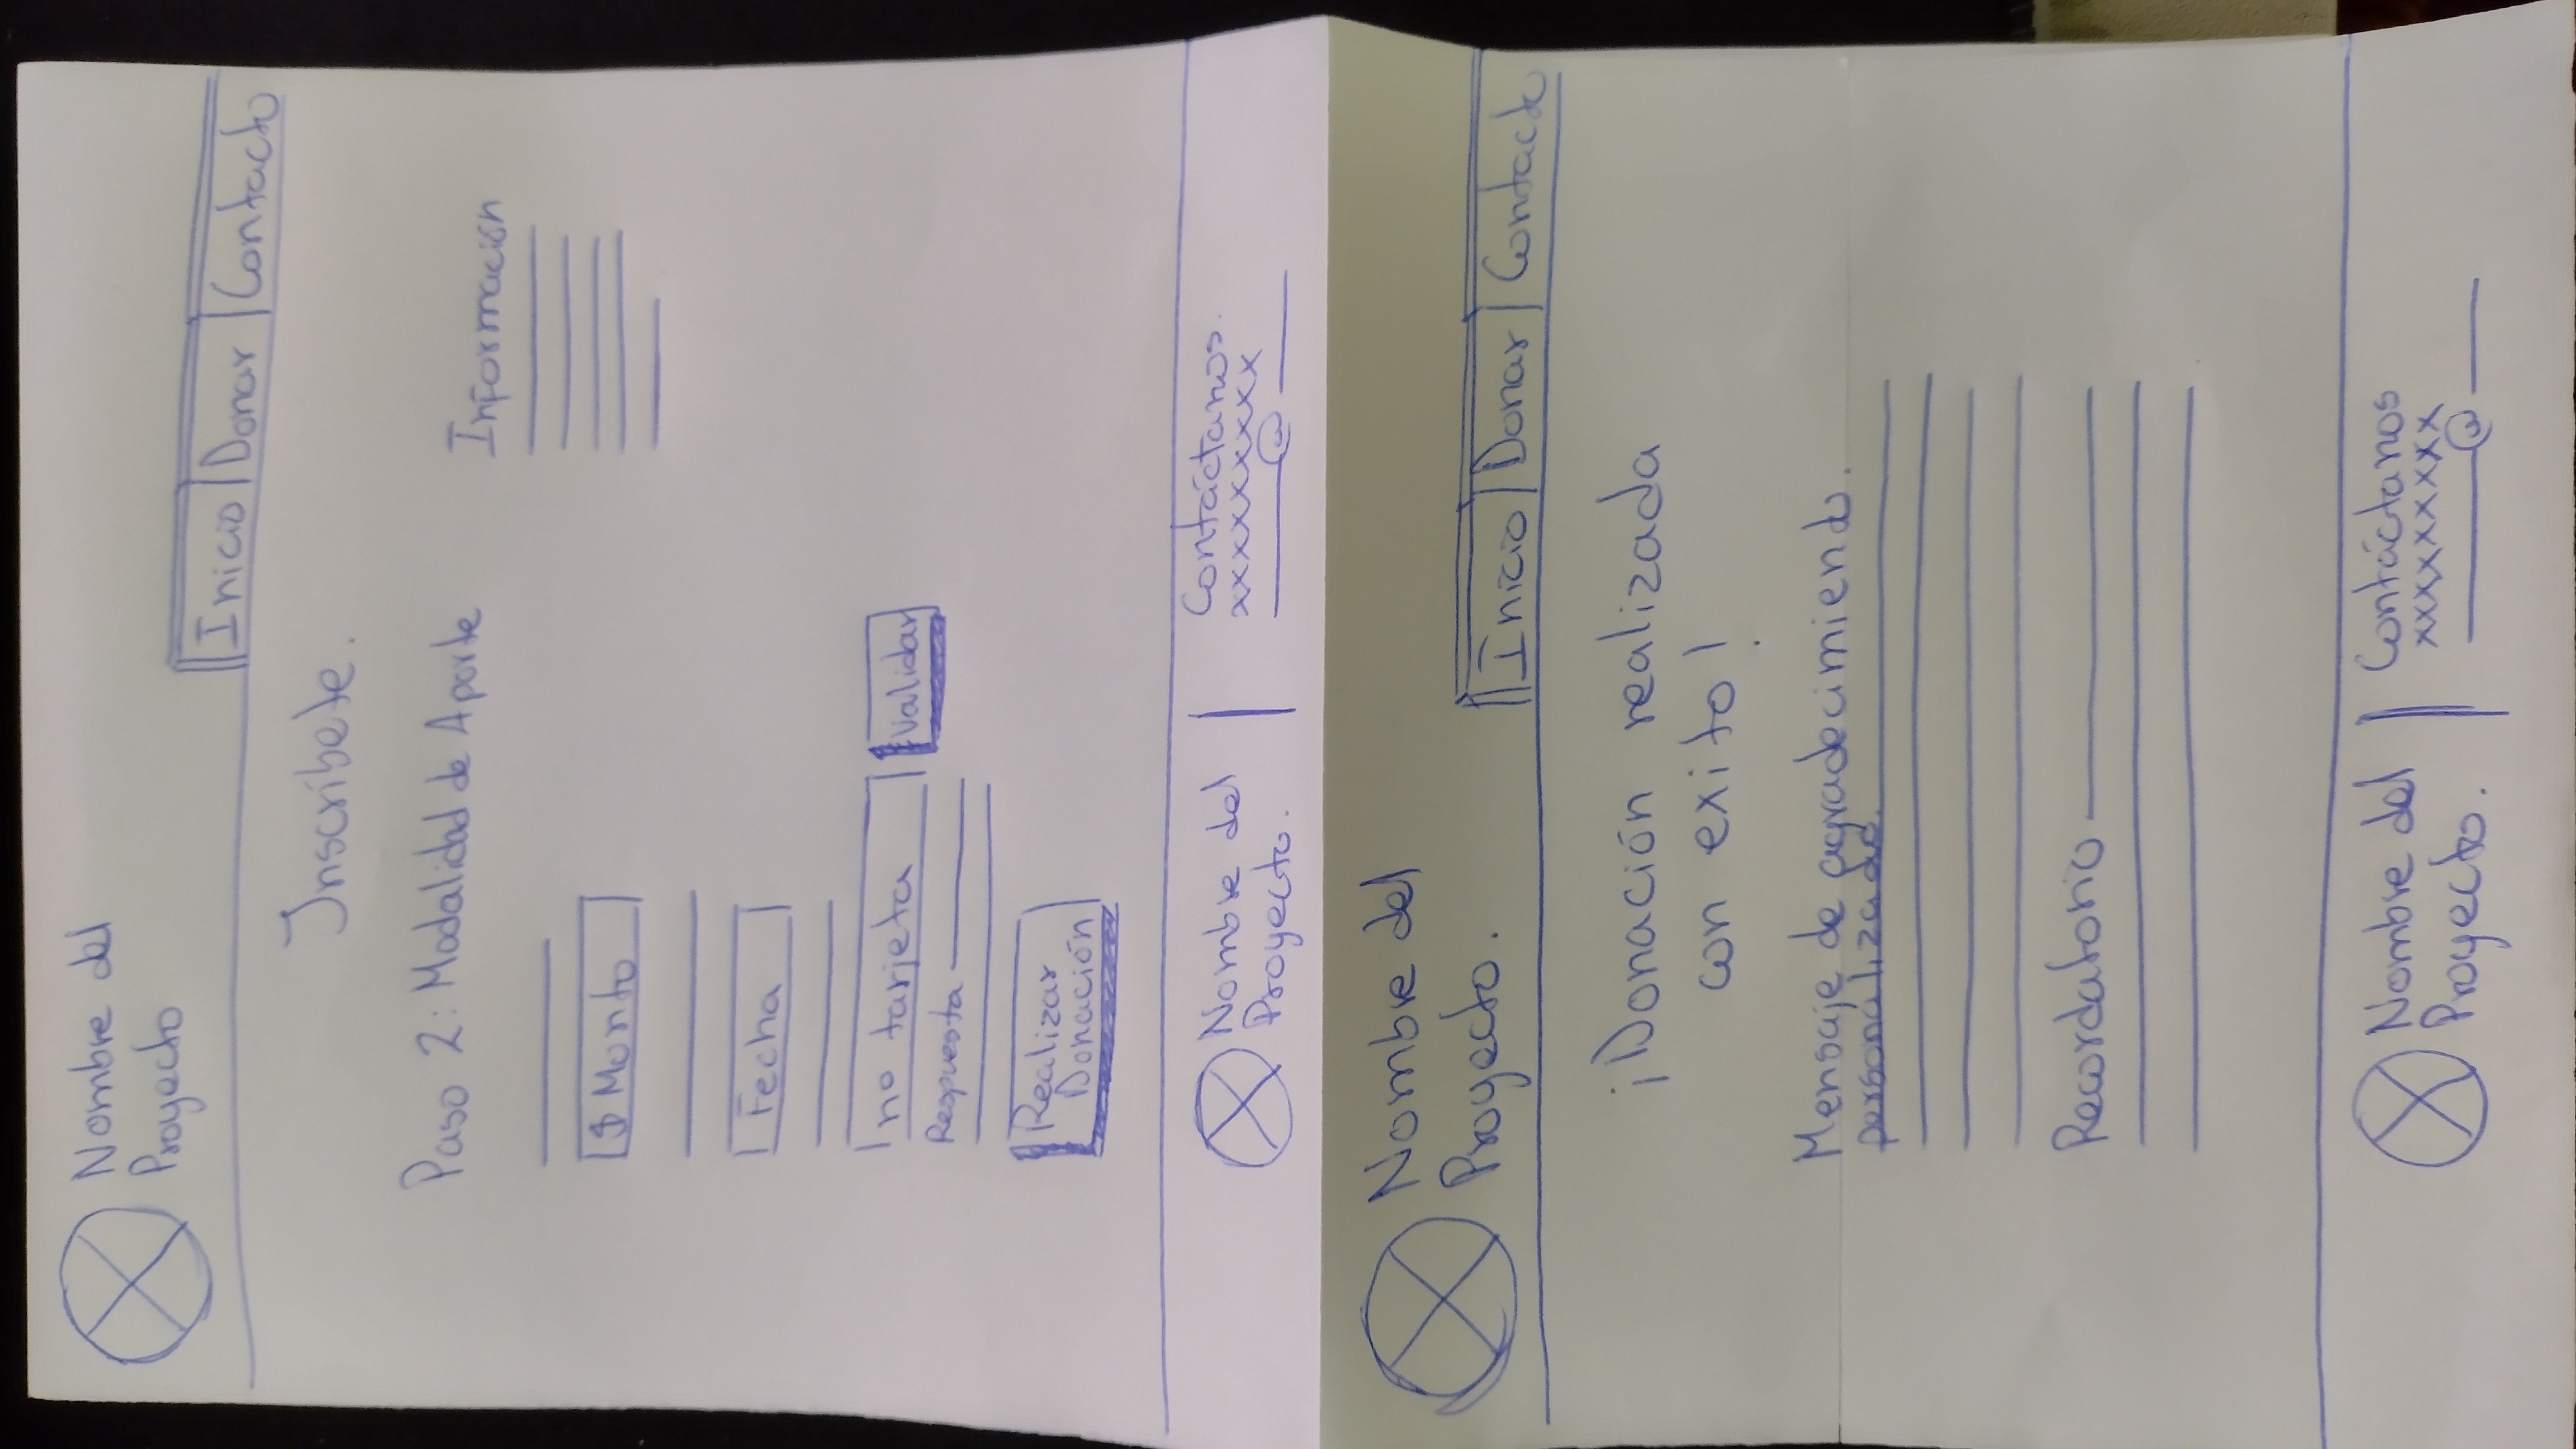 Nombre del
Proyecto
Inicio Donar Contacto
Inscríbete.
Paso 2: Modalidad de Aporte
Información
$ Monto
Fecha
no tarjeta
Validar
Respuesta
Realizar
Donación
Nombre del
Proyecto.
Contáctanos.
xxxxxxxxx
@
Nombre del
Proyecto.
Inicio Donar Contacto
¡Donación realizada
con exito!
Mensaje de agradecimiento.
personalizado.
Recordatorio
Nombre del
Proyecto.
Contáctanos
xxxxxxxxx
@